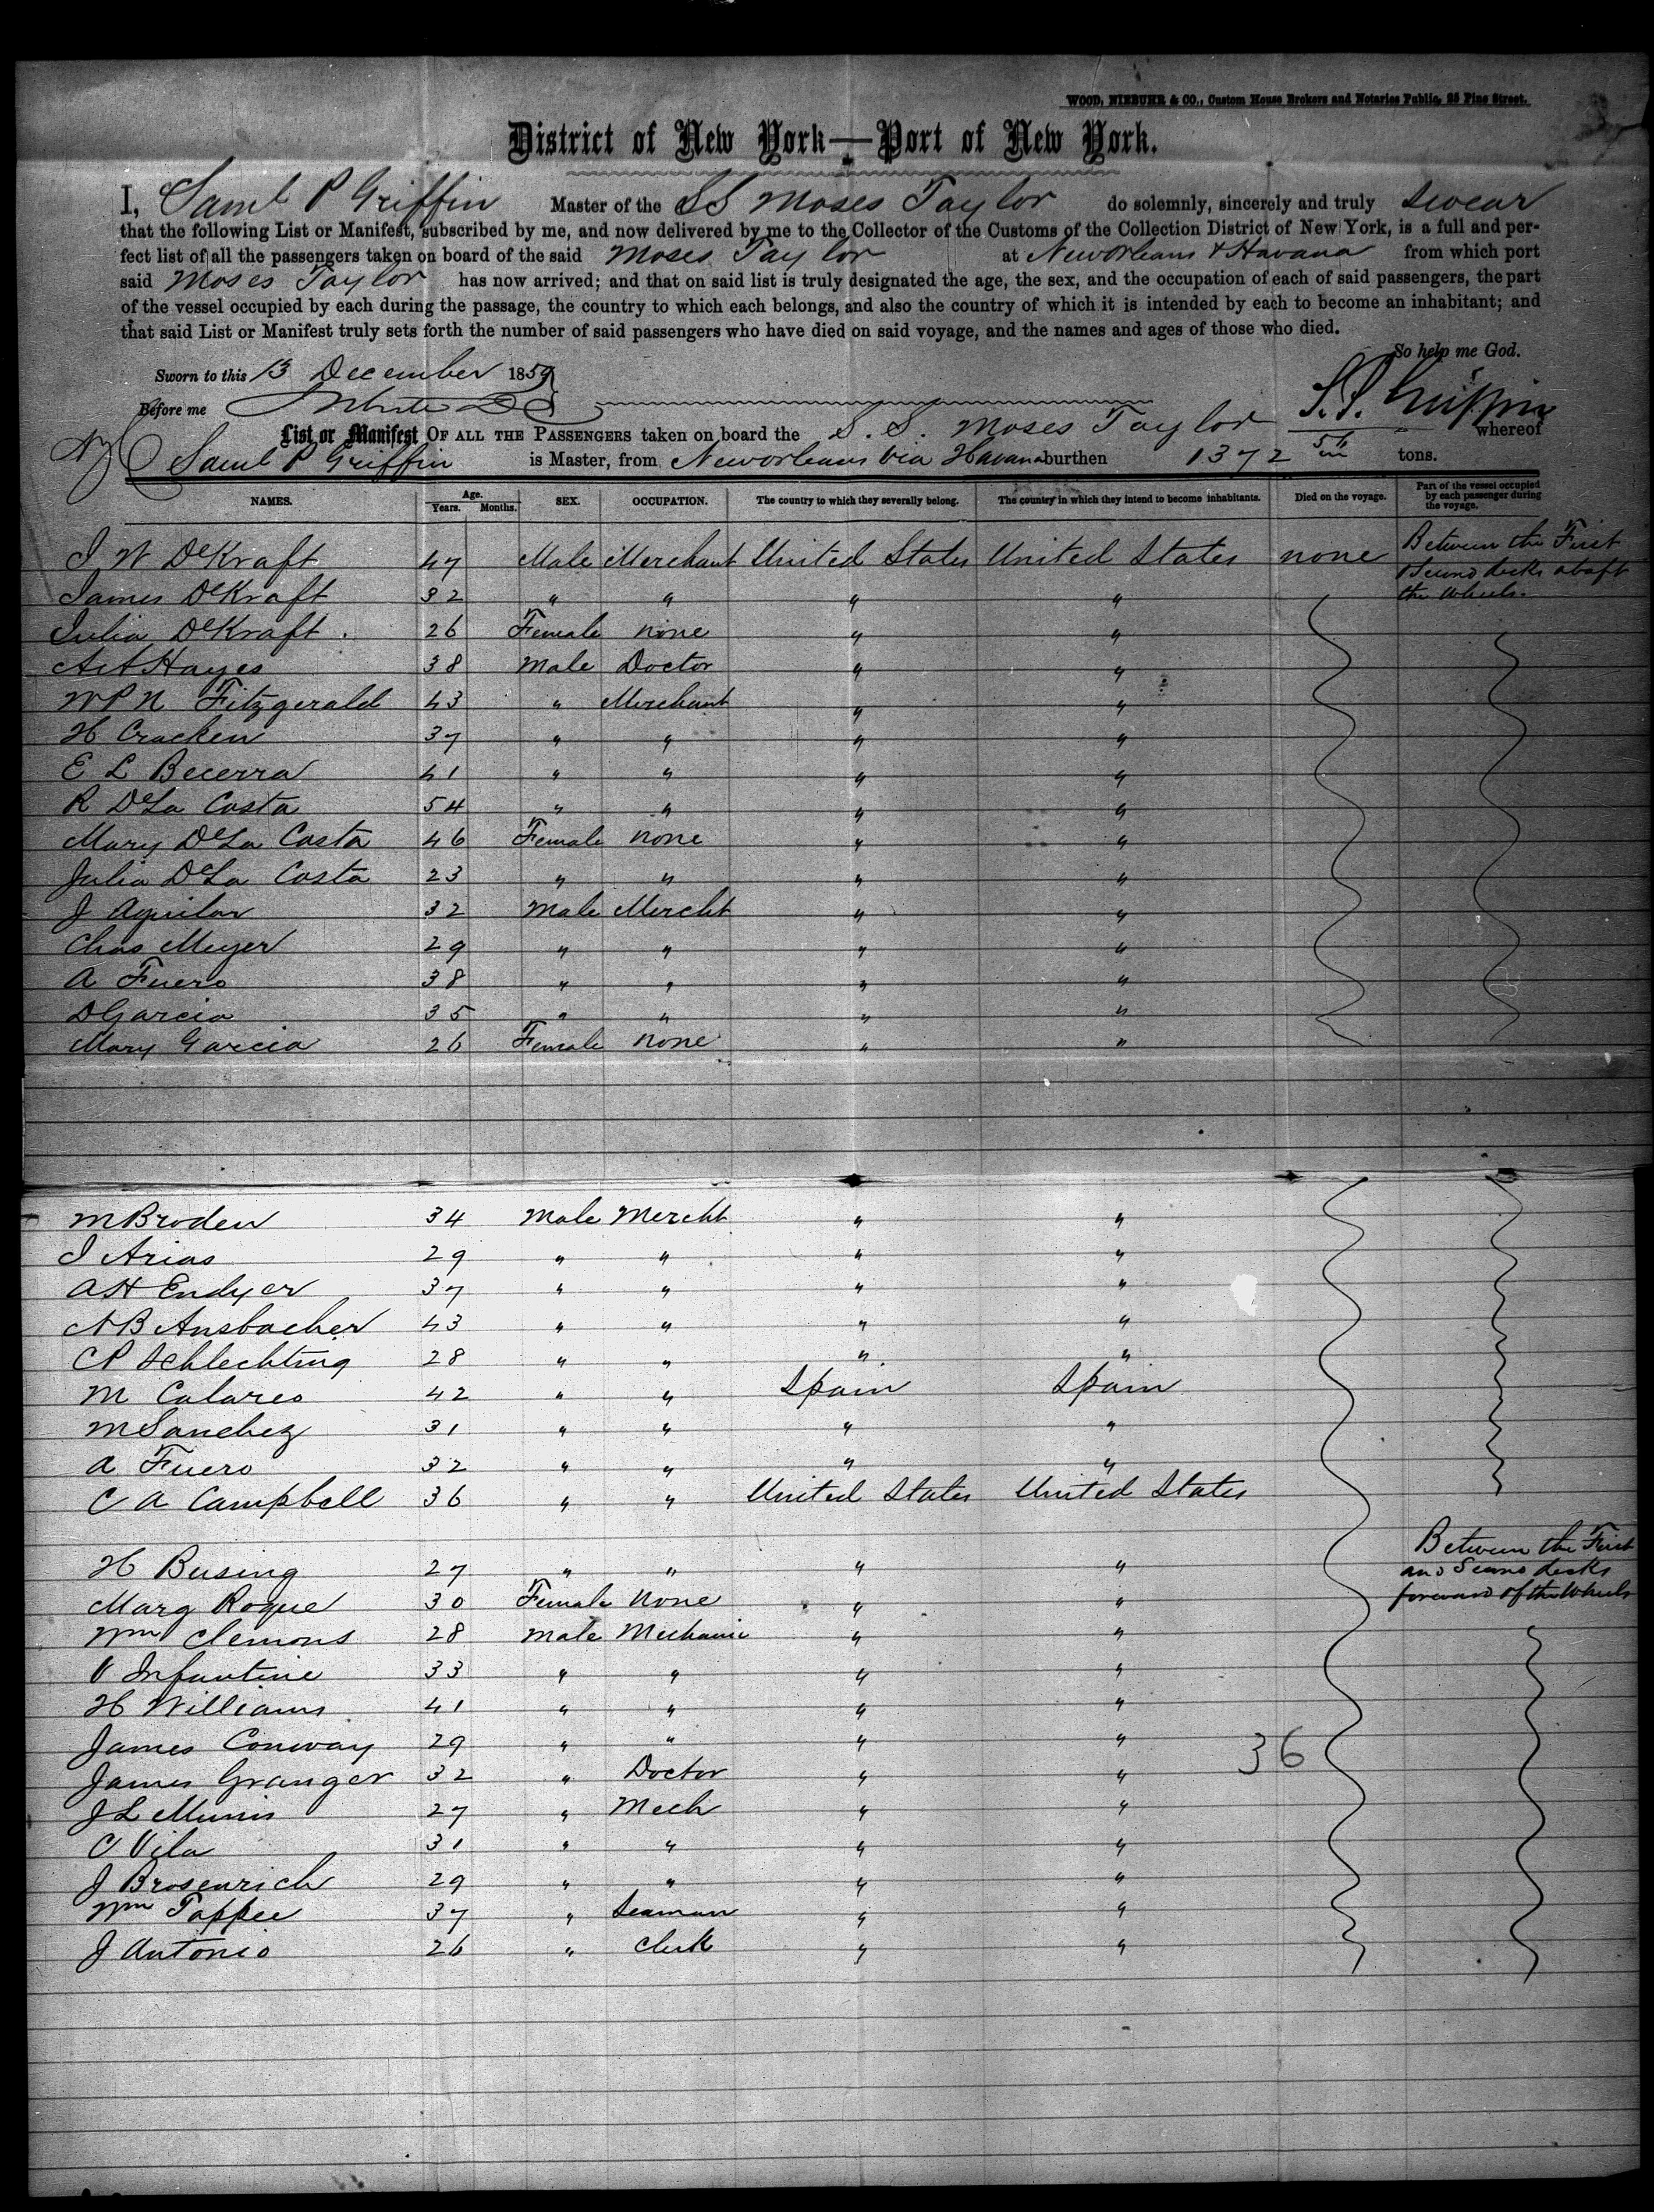 WOOD, NIEBUHR & CO., Custom House Brokers and Notaries Public, 25 Pine Street.
District of New York—Port of New York.
I, Saml P Griffin Master of the SS Moses Taylor do solemnly, sincerely and truly swear
that the following List or Manifest, subscribed by me, and now delivered by me to the Collector of the Customs of the Collection District of New York, is a full and per-
fect list of all the passengers taken on board of the said Moses Taylor at New Orleans & Havana from which port
said Moses Taylor has now arrived; and that on said list is truly designated the age, the sex, and the occupation of each of said passengers, the part
of the vessel occupied by each during the passage, the country to which each belongs, and also the country of which it is intended by each to become an inhabitant; and
that said List or Manifest truly sets forth the number of said passengers who have died on said voyage, and the names and ages of those who died.
So help me God.
Sworn to this 13 December 1859
S. P. Griffin
Before me
List or Manifest OF ALL THE PASSENGERS taken on board the S. S. Moses Taylor whereof
Saml P Griffin is Master, from New Orleans via Havana burthen 1372 tons.
NAMES. Age. Years. Months. SEX. OCCUPATION. The country to which they severally belong. The country in which they intend to become inhabitants. Died on the voyage. Part of the vessel occupied by each passenger during the voyage.
J W DeKraft 47 Male Merchant United States United States none Between the First
James DeKraft 32 " " " " & Second decks abaft
the Wheels.
Julia DeKraft. 26 Female none " "
A A Hayes 38 Male Doctor " "
W P N Fitzgerald 43 " Merchant " "
H Cracken 37 " " " "
E L Becerra 41 " " " "
R DeLa Costa 54 " " " "
Mary DeLa Costa 46 Female none " "
Julia DeLa Costa 23 " " " "
J Aguilar 32 Male Mercht " "
Chas Meyer 29 " " " "
A Fuero 38 " " " "
D Garcia 35 " " " "
Mary Garcia 26 Female none " "
M Broden 34 Male Mercht " "
J Arias 29 " " " "
A H Endyer 37 " " " "
N B Ansbacher 43 " " " "
C P Schlechting 28 " " " "
M Calares 42 " " Spain Spain
M Sanchez 31 " " " "
A Fuero 32 " " " "
C A Campbell 36 " " United States United States
H Busing 27 " " " " Between the First
and Second decks
Marg Roque 30 Female None " " forward of the Wheels
Wm Clemons 28 Male Mechanic " "
V Infantine 33 " " " "
H Williams 41 " " " "
James Conway 29 " " " " 36
James Granger 32 " Doctor " "
J L Munis 27 " Mech " "
C Vila 31 " " " "
J Brosenrich 29 " " " "
Wm Tappee 37 " Seaman " "
J Antonio 26 " Clerk " "